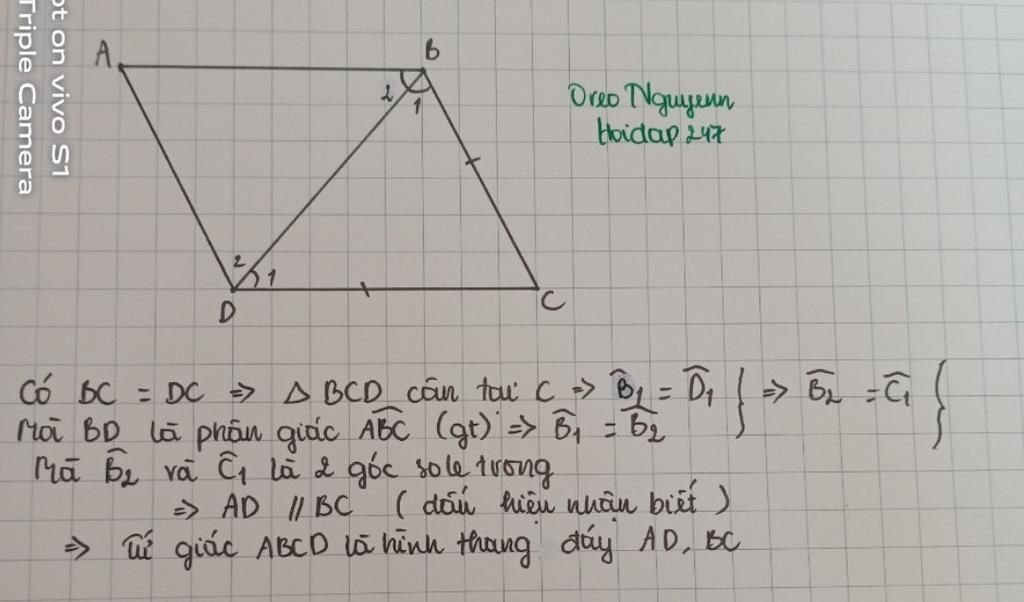 ot on vivo S1
Triple Camera
A
B
2
1
Oreo Nguyenn
Hoidap 247
2
1
D
C
Có BC = DC => Δ BCD cân tại C => B̂₁ = D̂₁ } => B̂₂ = Ĉ₁ }
Mà BD là phân giác ABC (gt) => B̂₁ = B̂₂
Mà B̂₂ và Ĉ₁ là 2 góc sole trong
=> AD // BC ( dấu hiệu nhận biết )
=> Tứ giác ABCD là hình thang đáy AD, BC